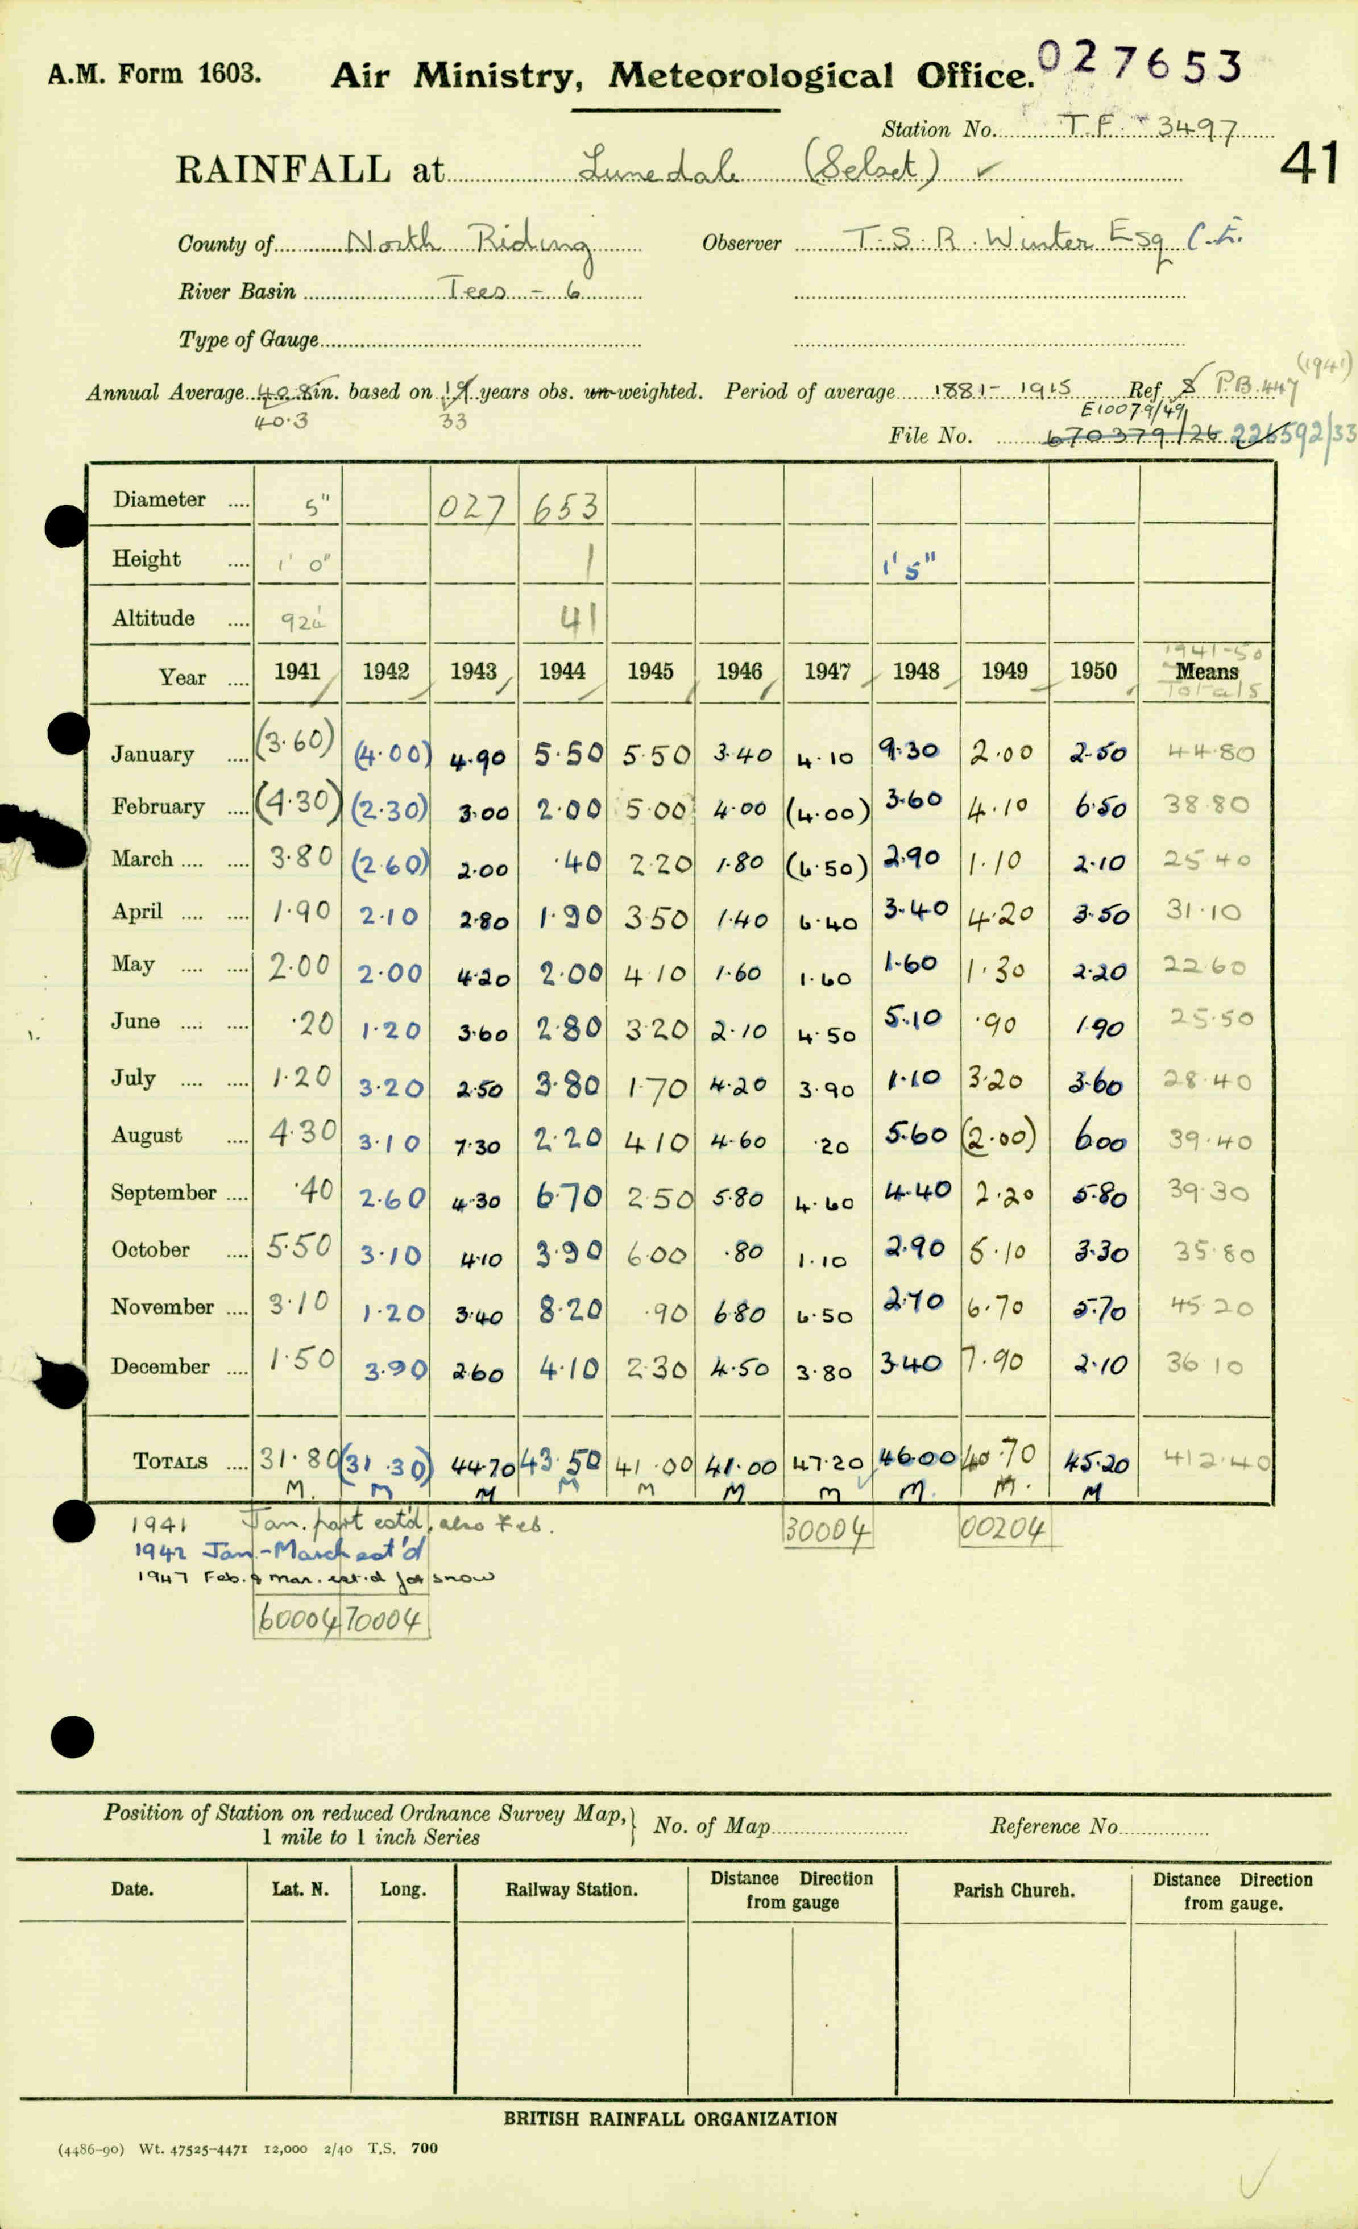 A.M. Form 1603. Air Ministry, Meteorological Office. 027653
Station No. T.F. 3497
41
RAINFALL at Lunedale (Selset) ✓
County of North Riding Observer T.S.R. Winter Esq C.E.
River Basin Tees - 6
Type of Gauge
(1941)
Annual Average 40.8 in. based on 19 years obs. un-weighted. Period of average 1881 - 1915 Ref 8 P.B. 447
40.3 33 E10079/49
File No. 670379/26 226592/33
Diameter .... 5" 027 653
Height .... 1' 0" 1 1' 5"
Altitude .... 924' 41
1941-50
Year .... 1941 1942 1943 1944 1945 1946 1947 1948 1949 1950 Means
Totals
January .... (3.60) (4.00) 4.90 5.50 5.50 3.40 4.10 9.30 2.00 2.50 44.80
February .... (4.30) (2.30) 3.00 2.00 5.00 4.00 (4.00) 3.60 4.10 6.50 38.80
March .... .... 3.80 (2.60) 2.00 .40 2.20 1.80 (6.50) 2.90 1.10 2.10 25.40
April .... .... 1.90 2.10 2.80 1.90 3.50 1.40 6.40 3.40 4.20 3.50 31.10
May .... .... 2.00 2.00 4.20 2.00 4.10 1.60 1.60 1.60 1.30 2.20 22.60
June .... .... .20 1.20 3.60 2.80 3.20 2.10 4.50 5.10 .90 1.90 25.50
July .... .... 1.20 3.20 2.50 3.80 1.70 4.20 3.90 1.10 3.20 3.60 28.40
August .... 4.30 3.10 7.30 2.20 4.10 4.60 .20 5.60 (2.00) 6.00 39.40
September .... .40 2.60 4.30 6.70 2.50 5.80 4.60 4.40 2.20 5.80 39.30
October .... 5.50 3.10 4.10 3.90 6.00 .80 1.10 2.90 5.10 3.30 35.80
November .... 3.10 1.20 3.40 8.20 .90 6.80 6.50 2.70 6.70 5.70 45.20
December .... 1.50 3.90 2.60 4.10 2.30 4.50 3.80 3.40 7.90 2.10 36.10
TOTALS .... 31.80 (31.30) 44.70 43.50 41.00 41.00 47.20 46.00 40.70 45.20 412.40
M. M M M M M M M. M. M
1941 Jan. part est'd, also Feb. 30004 00204
1942 Jan.-March est'd
1947 Feb. & Mar. est.d for snow
60004 70004
Position of Station on reduced Ordnance Survey Map, No. of Map Reference No.
1 mile to 1 inch Series
Date. Lat. N. Long. Railway Station. Distance Direction from gauge Parish Church. Distance Direction from gauge.
BRITISH RAINFALL ORGANIZATION
(4486-90) Wt. 47525-4471 12,000 2/40 T.S. 700